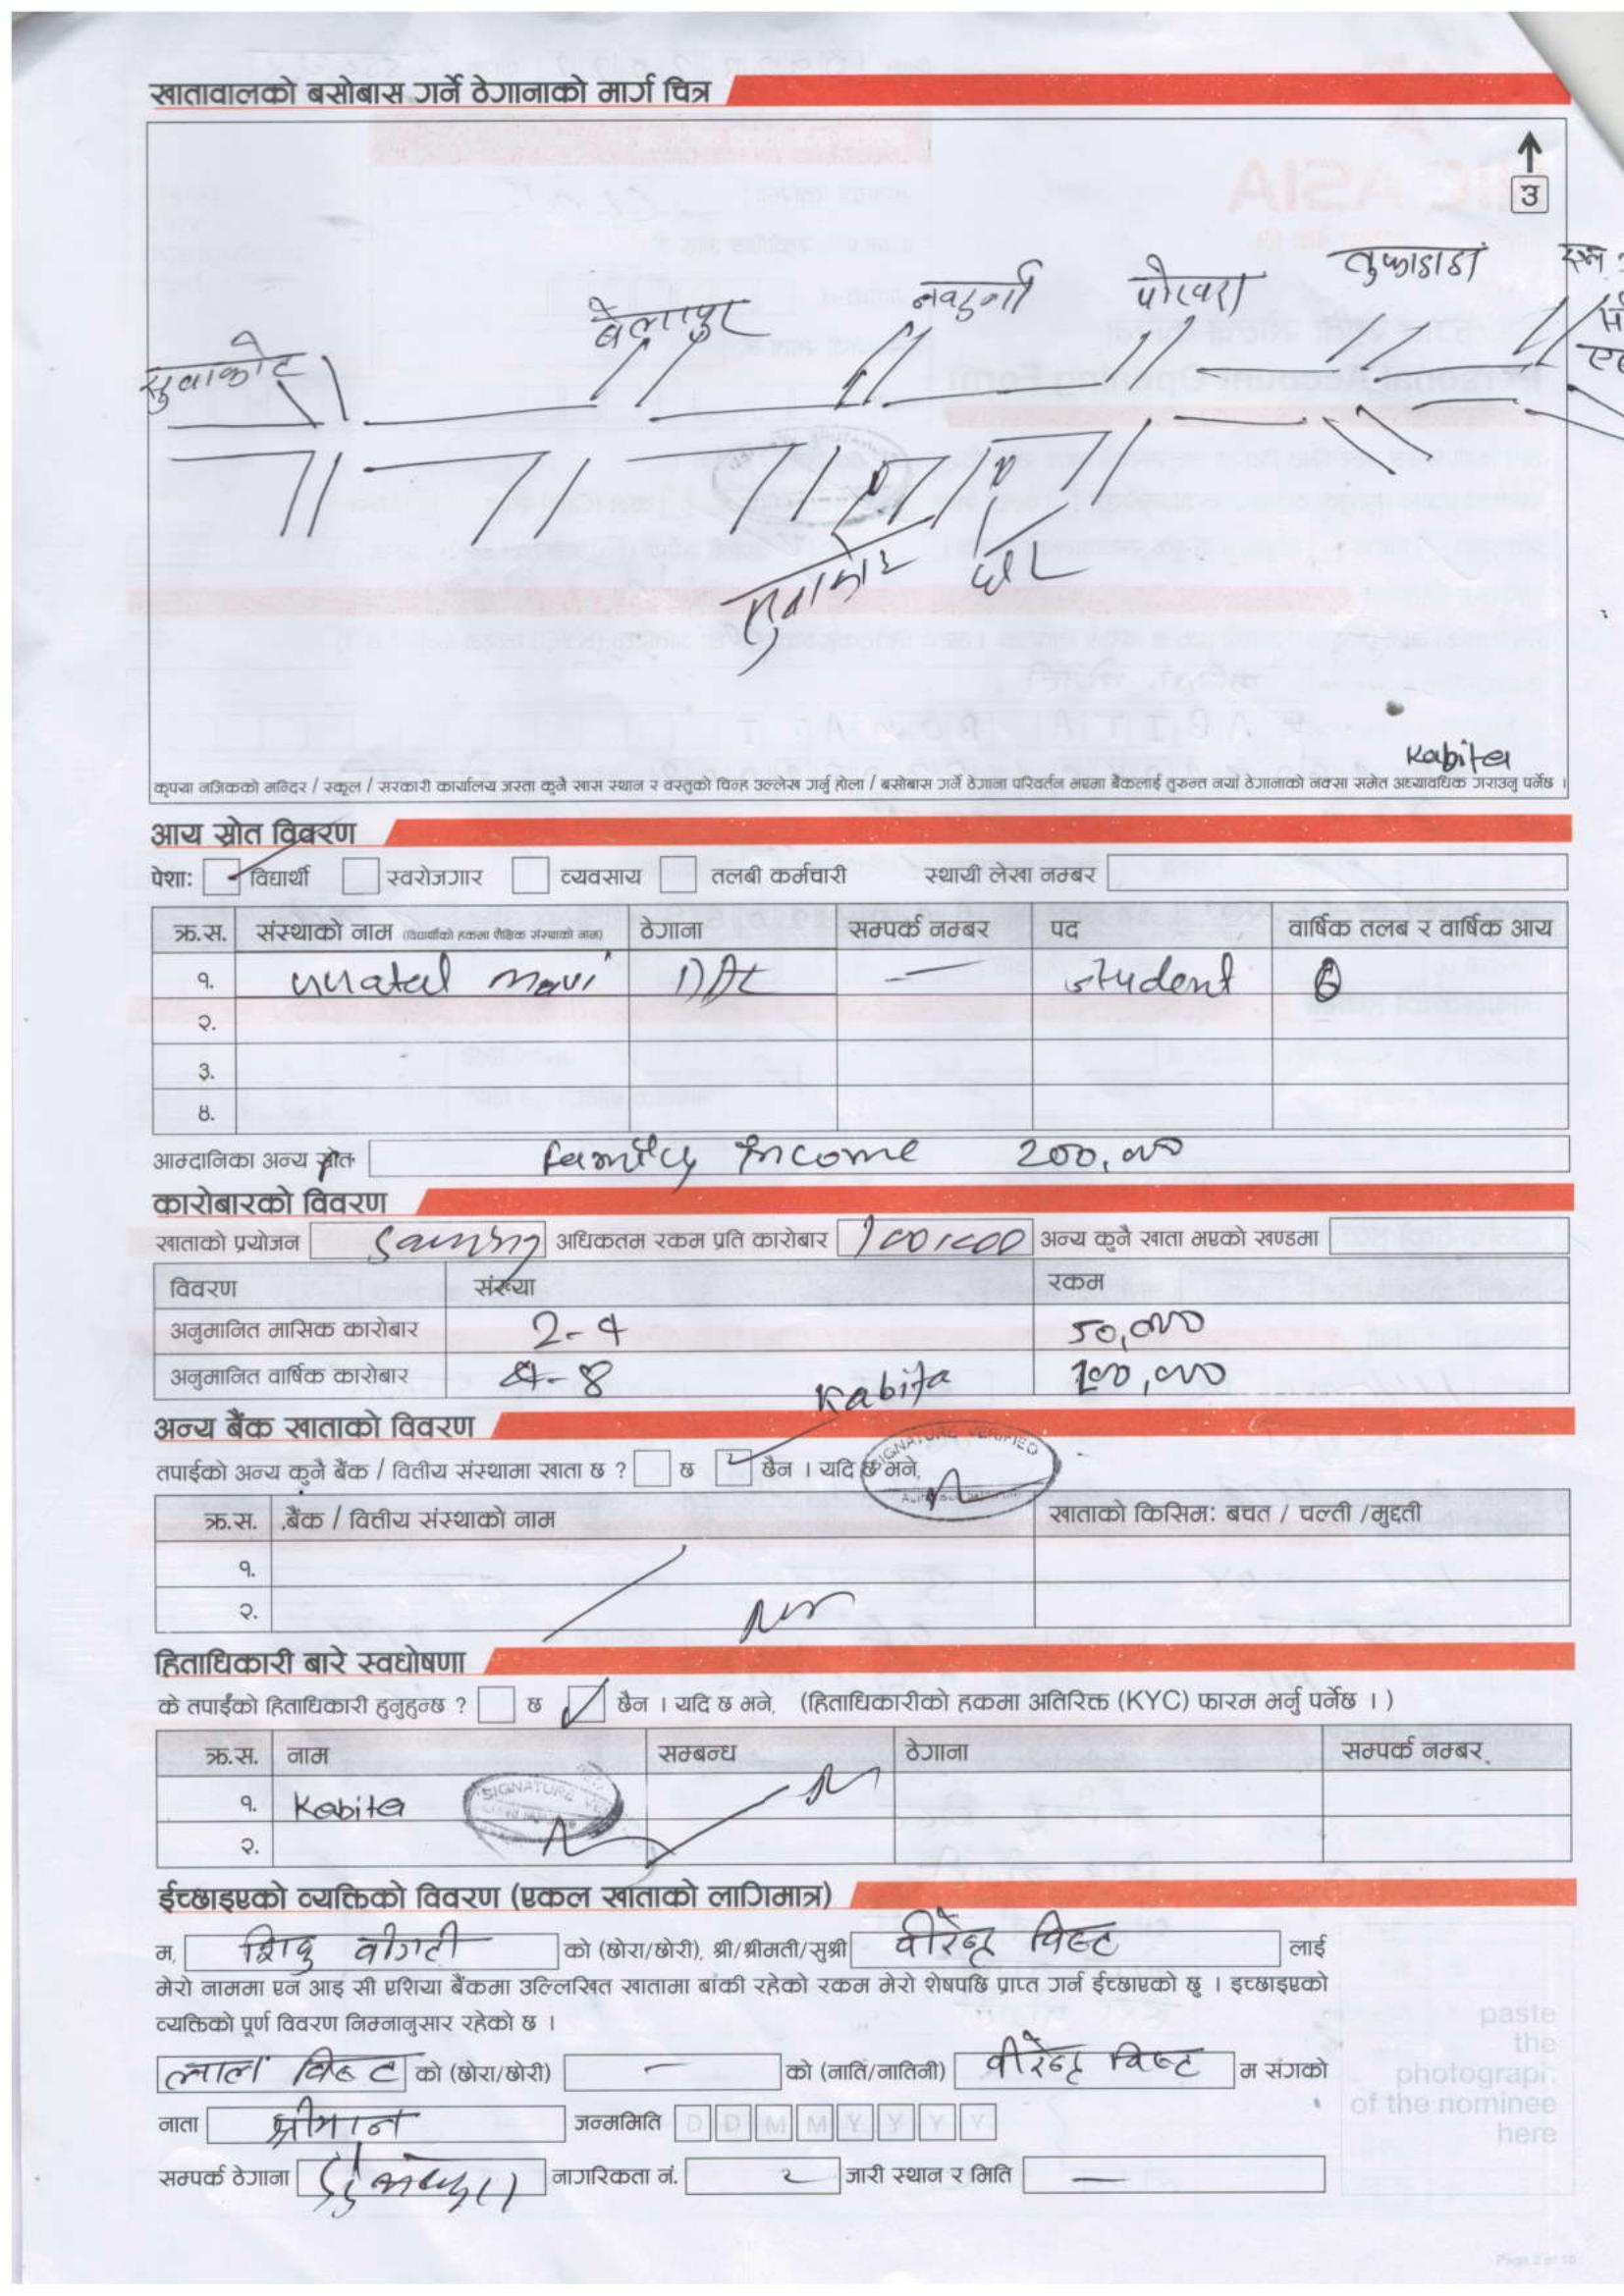 खातावालको बसोबास गर्ने ठेगानाको मार्ग चित्र
उ
सुवाकोट बेलापुर नवदुर्गा पोखरा
घर
Kabita
कृपया नजिकको मन्दिर / स्कूल / सरकारी कार्यालय जस्ता कुनै खास स्थान र वस्तुको चिन्ह उल्लेख गर्नु होला / बसोबास गर्ने ठेगाना परिवर्तन भएमा बैंकलाई तुरुन्त नयाँ ठेगानाको नक्सा समेत अध्यावधिक गराउनु पर्नेछ ।
आय स्रोत विवरण
पेशाः विद्यार्थी स्वरोजगार व्यवसाय तलबी कर्मचारी स्थायी लेखा नम्बर
क्र.स. संस्थाको नाम (विद्यार्थीको हकमा शैक्षिक संस्थाको नाम) ठेगाना सम्पर्क नम्बर पद वार्षिक तलब र वार्षिक आय
१. mavi — student
२.
३.
४.
आम्दानिका अन्य स्रोत family Income 200,000
कारोबारको विवरण
खाताको प्रयोजन अधिकतम रकम प्रति कारोबार अन्य कुनै खाता भएको खण्डमा
विवरण संख्या रकम
अनुमानित मासिक कारोबार 2-4 50,000
अनुमानित वार्षिक कारोबार 4-8 100,000
Kabita
अन्य बैंक खाताको विवरण
तपाईको अन्य कुनै बैंक / वितीय संस्थामा खाता छ ? छ छैन । यदि छ भने, SIGNATURE VERIFIED
क्र.स. बैंक / वित्तीय संस्थाको नाम खाताको किसिम: बचत / चल्ती /मुद्दती
१.
२.
हिताधिकारी बारे स्वघोषणा
के तपाईंको हिताधिकारी हुनुहुन्छ ? छ छैन । यदि छ भने, (हिताधिकारीको हकमा अतिरिक्त (KYC) फारम भर्नु पर्नेछ । )
क्र.स. नाम सम्बन्ध ठेगाना सम्पर्क नम्बर
१. Kabita SIGNATURE
२.
ईच्छाइएको व्यक्तिको विवरण (एकल खाताको लागिमात्र)
म, को (छोरा/छोरी), श्री/श्रीमती/सुश्री वीरेन्द्र विष्ट लाई
मेरो नाममा एन आइ सी एशिया बैंकमा उल्लिखित खातामा बांकी रहेको रकम मेरो शेषपछि प्राप्त गर्न ईच्छाएको छु । इच्छाइएको
व्यक्तिको पूर्ण विवरण निम्नानुसार रहेको छ ।
लाल विष्ट को (छोरा/छोरी) — को (नाति/नातिनी) वीरेन्द्र विष्ट म संगको
नाता श्रीमान जन्ममिति D D M M Y Y Y Y
सम्पर्क ठेगाना नागरिकता नं. जारी स्थान र मिति —
paste
the
photograph
of the nominee
here
Page 2 of 10